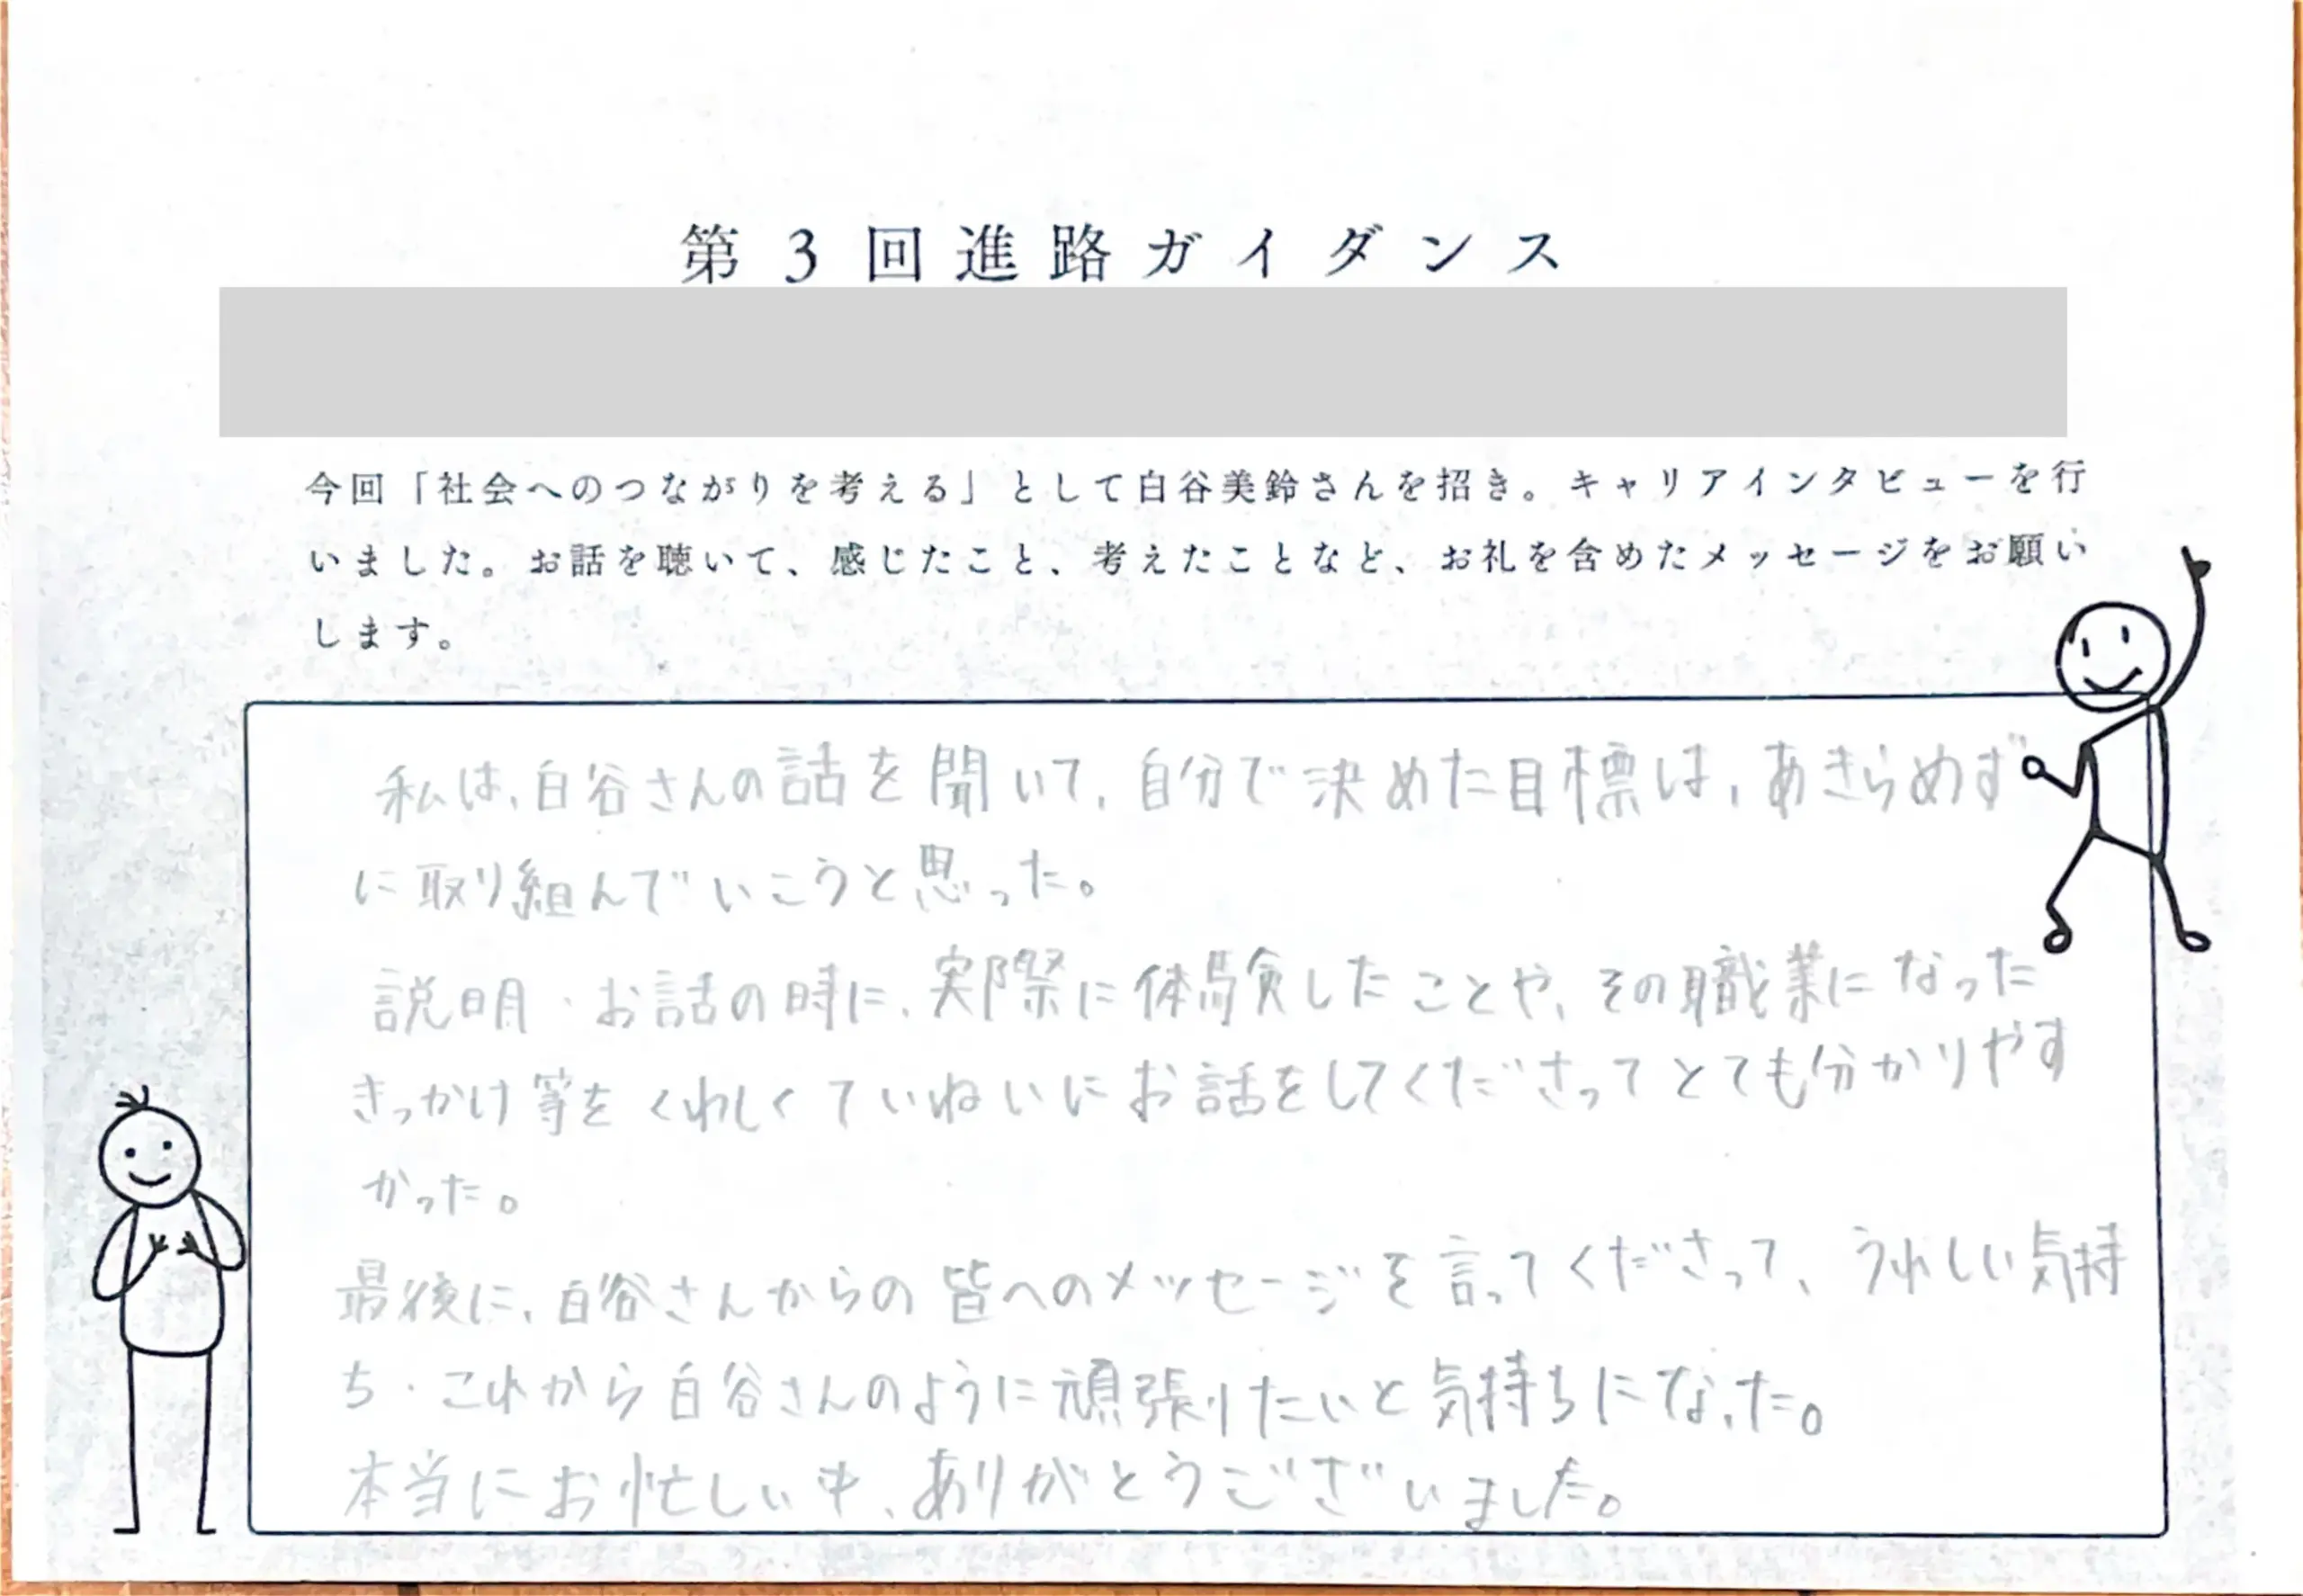 第3回進路ガイダンス
今回「社会へのつながりを考える」として白谷美鈴さんを招き。キャリアインタビューを行
いました。お話を聴いて、感じたこと、考えたことなど、お礼を含めたメッセージをお願い
します。
私は、白谷さんの話を聞いて、自分で決めた目標は、あきらめず
に取り組んでいこうと思った。
説明・お話の時に、実際に体験したことや、その職業になった
きっかけ等をくわしくていねいにお話をしてくださってとても分かりやす
かった。
最後に、白谷さんからの皆へのメッセージを言ってくださって、うれしい気持
ち・これから白谷さんのように頑張りたいと気持ちになった。
本当にお忙しい中、ありがとうございました。